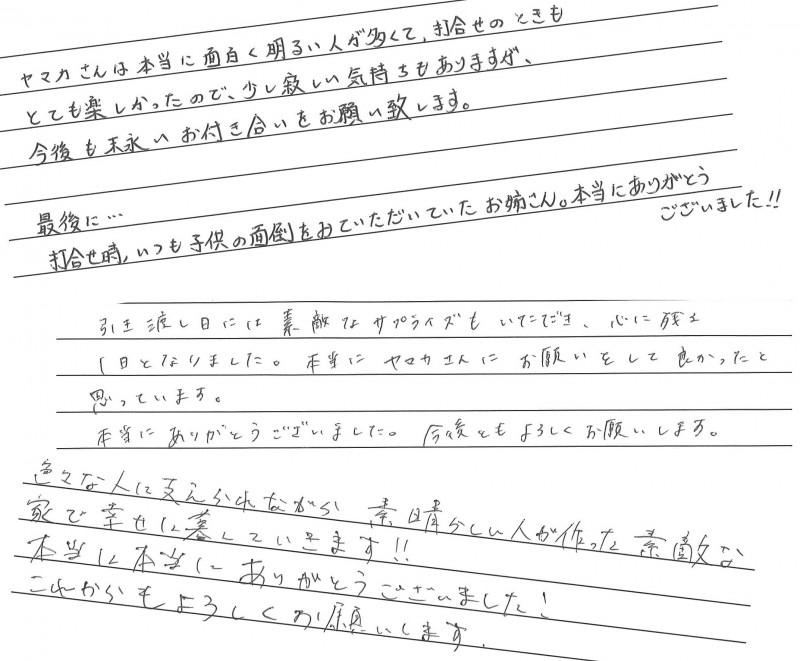 ヤマカさんは本当に面白く明るい人が多くて、打合せのときも
とても楽しかったので、少し寂しい気持ちもありますが、
今後も末永いお付き合いをお願い致します。
最後に…
打合せ時、いつも子供の面倒をみていただいていたお姉さん。本当にありがとう
ございました!!
引き渡し日には素敵なサプライズもいただき、心に残る
1日となりました。本当にヤマカさんにお願いをして良かったと
思っています。
本当にありがとうございました。今後ともよろしくお願いします。
色々な人に支えられながら素晴らしい人が作った素敵な
家で幸せに暮していきます!!
本当に本当にありがとうございました!
これからもよろしくお願いします.